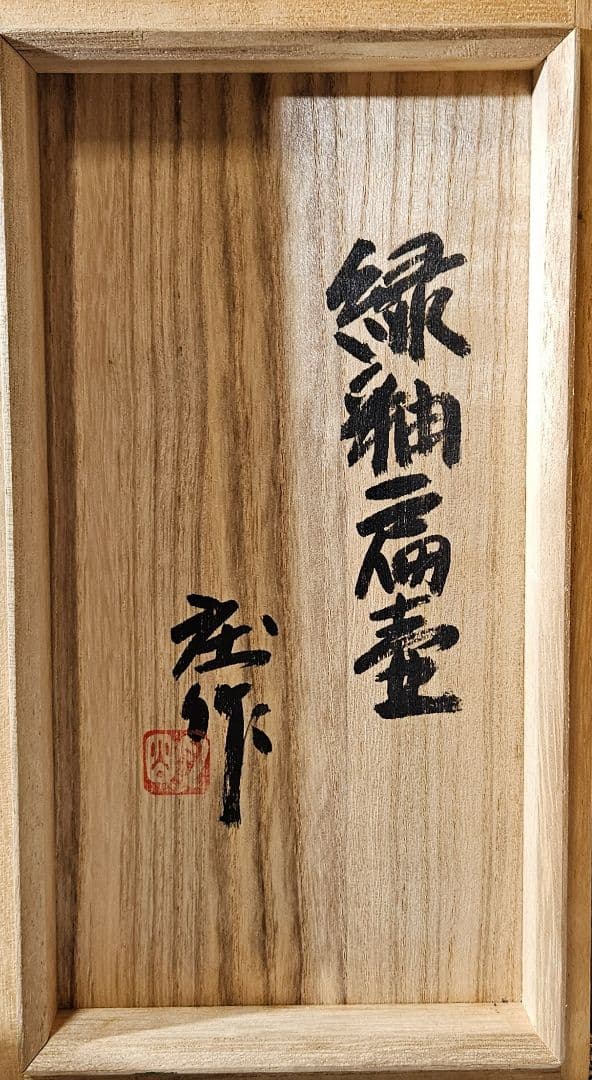 緑釉扁壷
庄作